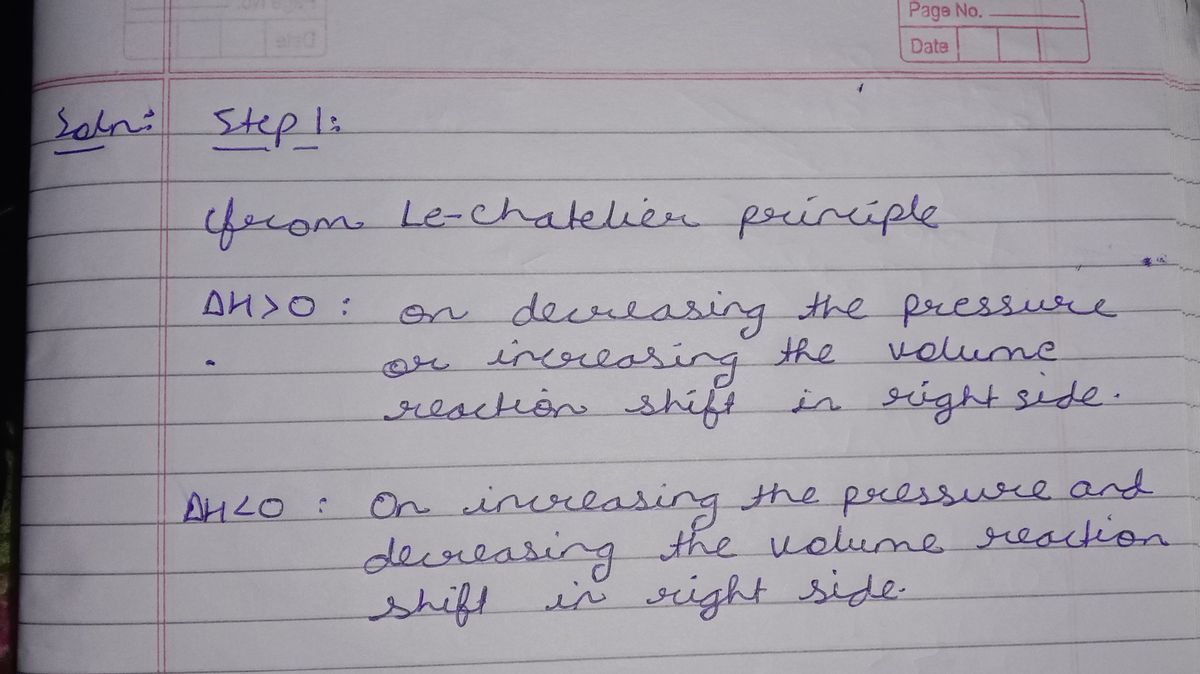 Page No.
Date
Soln: Step 1:
from Le-chatelier principle
ΔH>0 : on decreasing the pressure
or increasing the volume
reaction shift in right side.
ΔH<0 : On increasing the pressure and
decreasing the volume reaction
shift in right side.